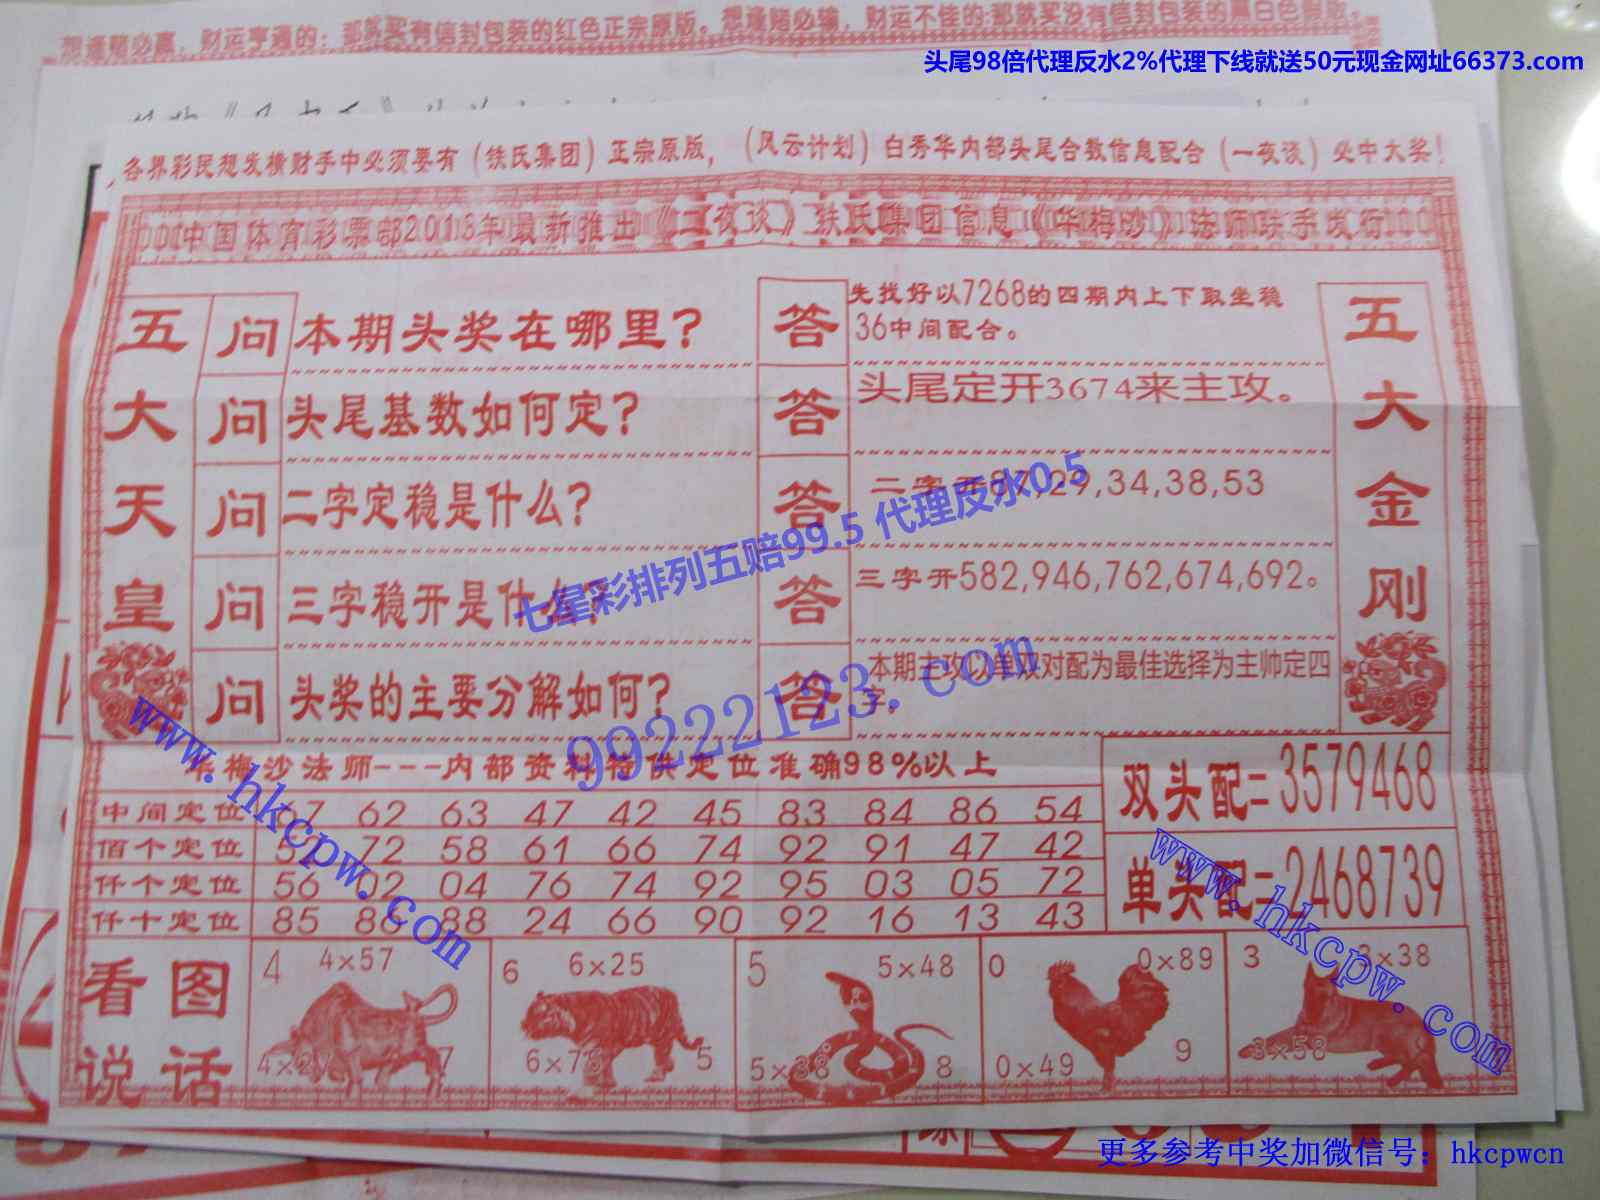 想逢赌必赢，财运亨通的：那就买有信封包装的红色正宗原版。想逢赌必输，财运不佳的:那就买没有信封包装的黑白色假版
头尾98倍代理反水2%代理下线就送50元现金网址66373.com
各界彩民想发横财手中必须要有（铁氏集团）正宗原版，（风云计划）白秀华内部头尾合数信息配合（一夜谈）必中大奖！
中国体育彩票部2018年最新推出《一夜谈》铁氏集团信息《华梅沙》法师联手发行
五大天皇
问 本期头奖在哪里？
答 先找好以7268的四期内上下取坐稳
36中间配合。
问 头尾基数如何定？
答 头尾定开3674来主攻。
问 二字定稳是什么？
答 二字开97,29,34,38,53
问 三字稳开是什么？
答 三字开582,946,762,674,692。
问 头奖的主要分解如何？
答 本期主攻以单双对配为最佳选择为主帅定四
字。
五大金刚
七星彩排列五赔99.5 代理反水0.5
99222123.com
www.hkcpw.com
梅沙法师---内部资料特供定位准确98%以上
中间定位 62 63 47 42 45 83 84 86 54
佰个定位 72 58 61 66 74 92 91 47 42
仟个定位 56 02 04 76 74 92 95 03 05 72
仟十定位 85 86 88 24 66 90 92 16 13 43
双头配=3579468
单头配=2468739
www.hkcpw.com
看图
说话
4 4×57
4×2 7
6 6×25
6×75 5
5 5×48
5×38 8
0 0×89
0×49 9
3 3×38
3×58
更多参考中奖加微信号：hkcpwcn